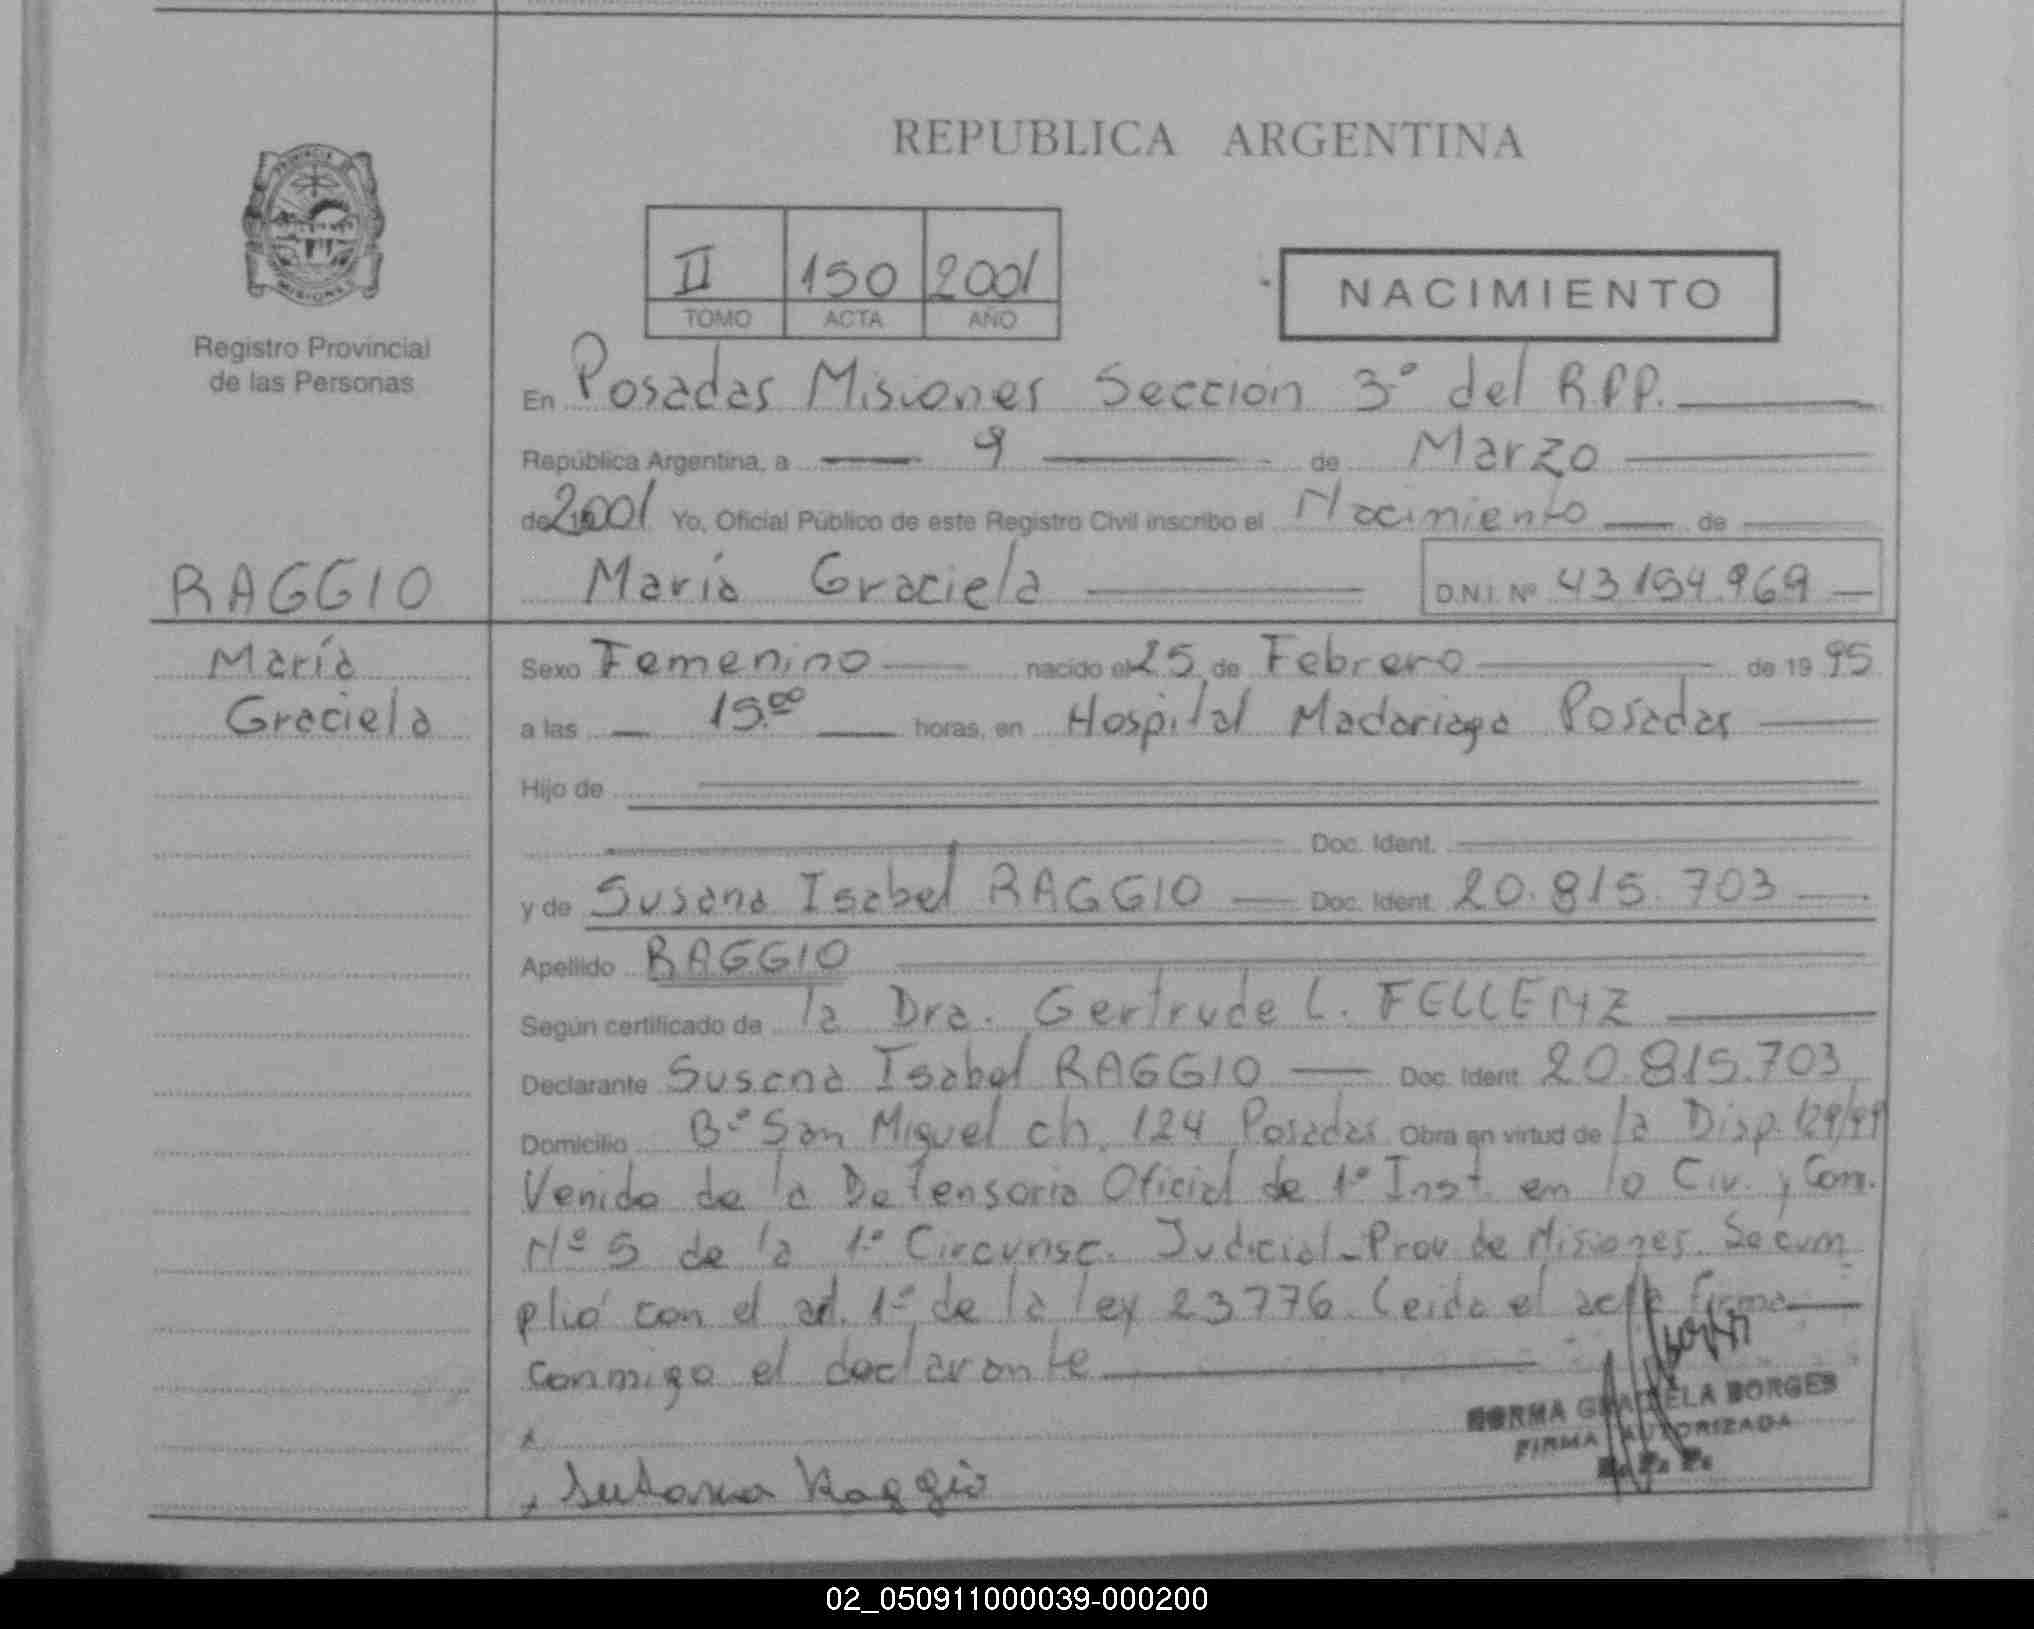 REPUBLICA ARGENTINA
PROVINCIA
MISIONES
Registro Provincial
de las Personas
II 150 2001
TOMO ACTA AÑO
NACIMIENTO
En Posadas Misiones Sección 3º del R.P.P.
República Argentina, a 9 de Marzo
de 2001 Yo, Oficial Público de este Registro Civil inscribo el Nacimiento de
RAGGIO
María Graciela D.N.I. Nº 43.154.969
María
Graciela
Sexo Femenino nacido el 25 de Febrero de 19 95
a las 15.00 horas, en Hospital Madariaga Posadas
Hijo de
Doc. Ident.
y de Susana Isabel RAGGIO Doc. Ident. 20.815.703
Apellido RAGGIO
Según certificado de la Dra. Gertrude L. FELLENZ
Declarante Susana Isabel RAGGIO Doc. Ident. 20.815.703
Domicilio Bº San Miguel ch. 124 Posadas Obra en virtud de la Disp. 129/99
Venido de la Defensoria Oficial de 1º Inst. en lo Civ. y Com.
Nº 5 de la 1º Circunsc. Judicial-Prov de Misiones. Se cum
plió con el art. 1º de la ley 23776. Leida el acta firma
conmigo el declarante
NORMA GRACIELA BORGES
FIRMA AUTORIZADA
R. P. P.
x
x Susana Raggio
02_050911000039-000200